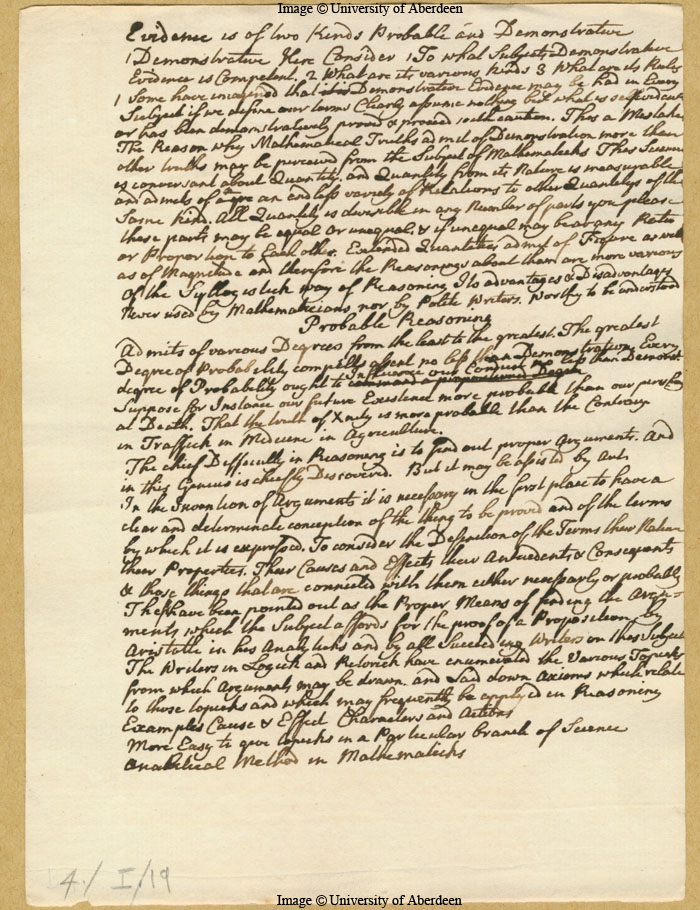 Image © University of Aberdeen
Evidence is of two Kinds Probable and Demonstrative
1 Demonstrative Here Consider 1 To what Subjects Demonstrative
Evidence is Competent, 2 What are its various kinds 3 What are its Rules
1 Some have imagined that Demonstrative Evidence may be had in Every
Subject if we define our terms Clearly assume nothing but what is selfevident
or has been demonstratively proved & proceed with caution. This a Mistake
The Reason why Mathematical Truths admit of Demonstration more than
other truths may be perceived from the Subject of Mathematicks This Science
is conversant about Quantity. and Quantity from its Nature is measurable
and admits of an endless variety of Relations to other Quantitys of the
Same kind. All Quantity is divisible in any Number of parts you please
these parts may be equal or unequal & if unequal may bear any Ratio
or Proportion to Each other. Extended Quantities admit of Figure as well
as of Magnitude and therefore the Reasonings about them are more various
Of the Syllogistick way of Reasoning Its advantages & Disadvantages
Never used by Mathematicians nor by Polite Writers. Worthy to be understood
Probable Reasoning
Admits of various Degrees from the least to the greatest. The greatest
Degree of Probability compells assent no less than Demonstration. Every
degree of Probability ought to Influence our Conduct no less than Demonst
Suppose for Instance our future Existence more probable than our perishing
at Death. That the truth of Xnity is more probable than the Contrary
in Traffick in Medicine in Agriculture.
The chief Difficulty in Reasoning is to find out proper Arguments. And
in this Genius is chiefly Discovered. But it may be assisted by Art.
In the Invention of Arguments it is necessary in the first place to have a
clear and determinate conception of the thing to be proved and of the terms
by which it is expressed. To consider the Definition of the Terms their Nature
their Properties. Their Causes and Effects their Antecedents & Consequents
& those things that are connected with them either necessarly or probably
These have been pointed out as the Proper Means of finding the Argu=
ments which the Subject affords for the proof of a Proposition by
Aristotle in his Analyticks and by all Succeeding Writers on this Subject
The Writers in Logick and Retorick have enumerated the Various Topicks
from which Arguments may be drawn and Laid down Axioms which relate
to those topicks and which may frequently be applyed in Reasoning
Examples Cause & Effect Characters and Actions
More Easy to give topicks in a Particular branch of Science
Analitical Method in Mathematicks
4/ I/19
Image © University of Aberdeen